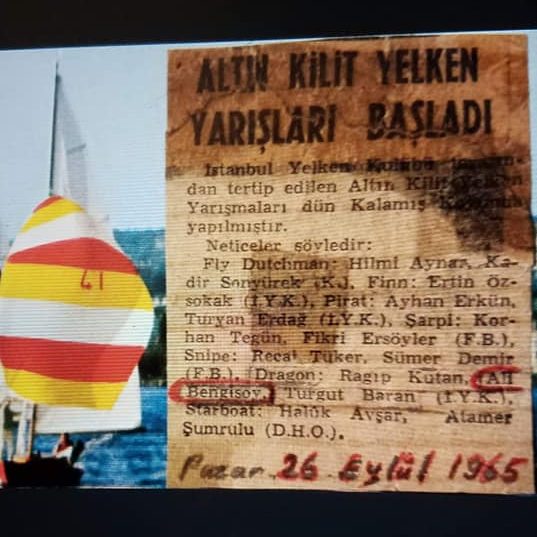 ALTIN KİLİT YELKEN
YARIŞLARI BAŞLADI
İstanbul Yelken Kulübü
dan tertip edilen Altın Kilit Yelken
Yarışmaları dün Kalamış
yapılmıştır.
Neticeler şöyledir:
Fly Dutchman: Hilmi Aynar, Ka-
dir Sonyürek (K.), Finn: Ertin Öz-
sokak (İ.Y.K.), Pirat: Ayhan Erkün,
Turyan Erdağ (İ.Y.K.), Şarpi: Kor-
han Tegün, Fikri Ersöyler (F.B.),
Snipe: Recai Tüker, Sümer Demir
(F.B.), Dragon: Ragıp Kutan, (Ali
Bengisoy, Turgut Baran (İ.Y.K.),
Starboat: Halûk Avşar, Atamer
Şumrulu (D.H.O.).
Pazar 26 Eylül 1965
41